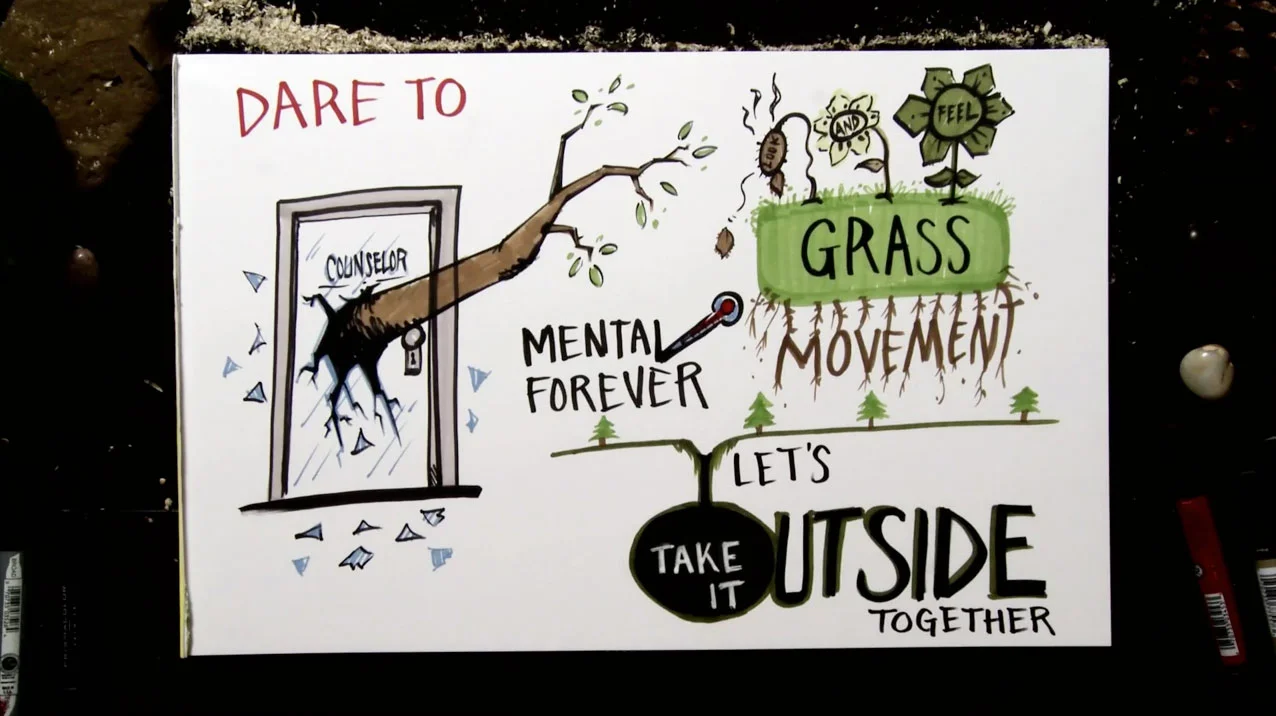 DARE TO
COUNSELOR
LOOK
AND
FEEL
GRASS
MOVEMENT
MENTAL
FOREVER
LET'S
TAKE
IT
OUTSIDE
TOGETHER